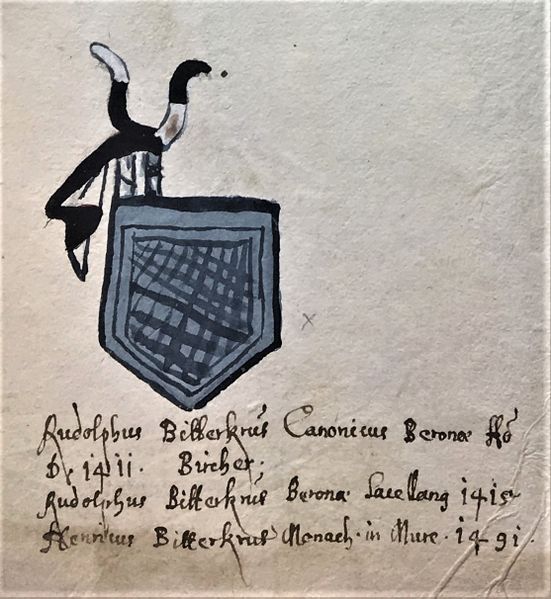 Rudolphus Bitterkrus Canonicus Beronæ
1411. Bircher.
Rudolphus Bitterkrus Beronæ 1415
Henricus Bitterkrus Monach. in Mure. 1491.